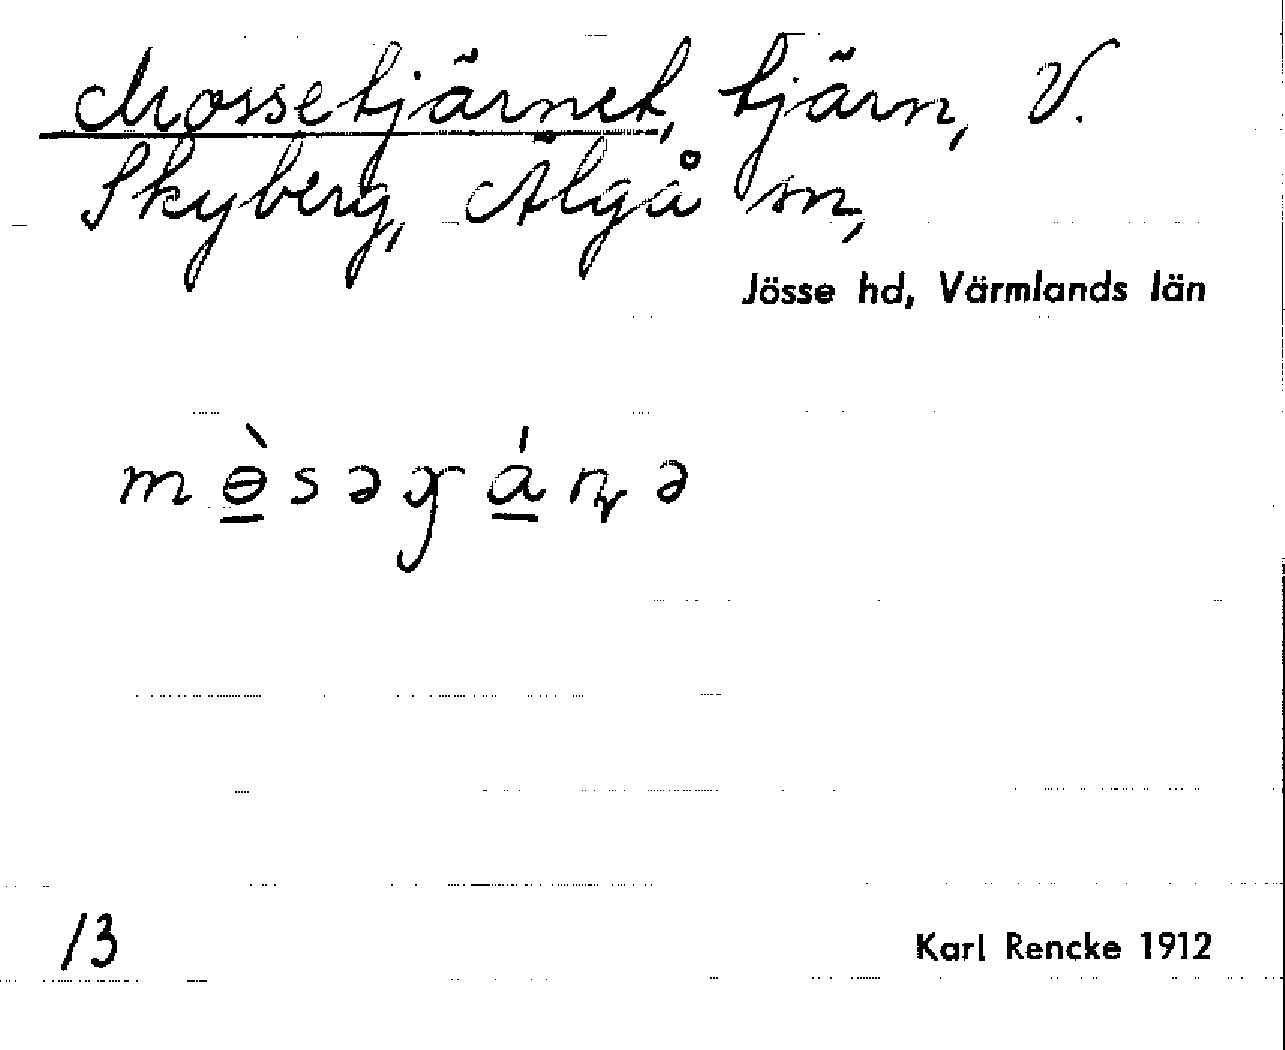 Mossetjärnet, tjärn, V.
Skyberg, Älgå sn,
Jösse hd, Värmlands län
mɵ̀səɣánə
13
Karl Rencke 1912